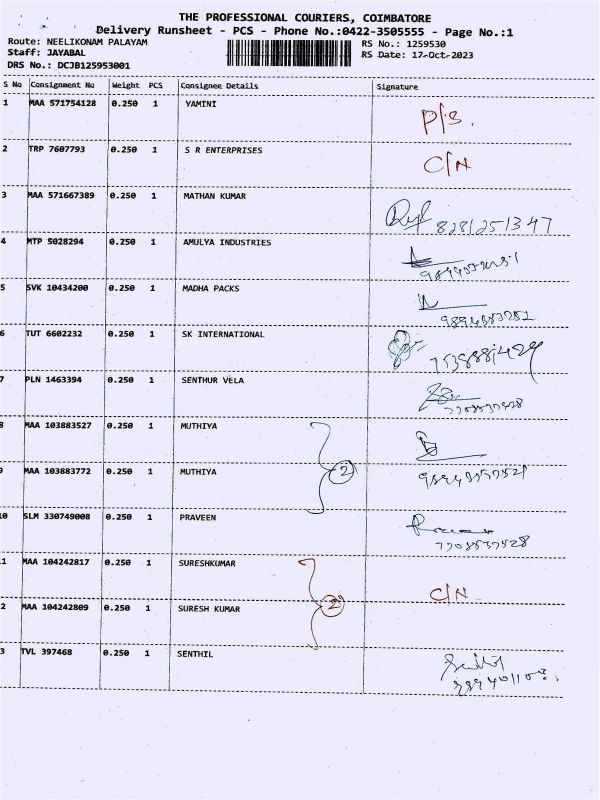 THE PROFESSIONAL COURIERS, COIMBATORE
Delivery Runsheet - PCS - Phone No.:0422-3505555 - Page No.:1
Route: NEELIKONAM PALAYAM
RS No.: 1259530
Staff: JAYABAL
RS Date: 17-Oct-2023
DRS No.: DCJB125953001
S No Consignment No Weight PCS Consignee Details Signature
1 MAA 571754128 0.250 1 YAMINI P/S.
2 TRP 7607793 0.250 1 S R ENTERPRISES C/N
3 MAA 571667389 0.250 1 MATHAN KUMAR 8281251347
4 MTP 5028294 0.250 1 AMULYA INDUSTRIES
5 SVK 10434200 0.250 1 MADHA PACKS
6 TUT 6602232 0.250 1 SK INTERNATIONAL
7 PLN 1463394 0.250 1 SENTHUR VELA
8 MAA 103883527 0.250 1 MUTHIYA
2
9 MAA 103883772 0.250 1 MUTHIYA
10 SLM 330749008 0.250 1 PRAVEEN
7708537528
11 MAA 104242817 0.250 1 SURESHKUMAR C/N
2
2 MAA 104242809 0.250 1 SURESH KUMAR
3 TVL 397468 0.250 1 SENTHIL